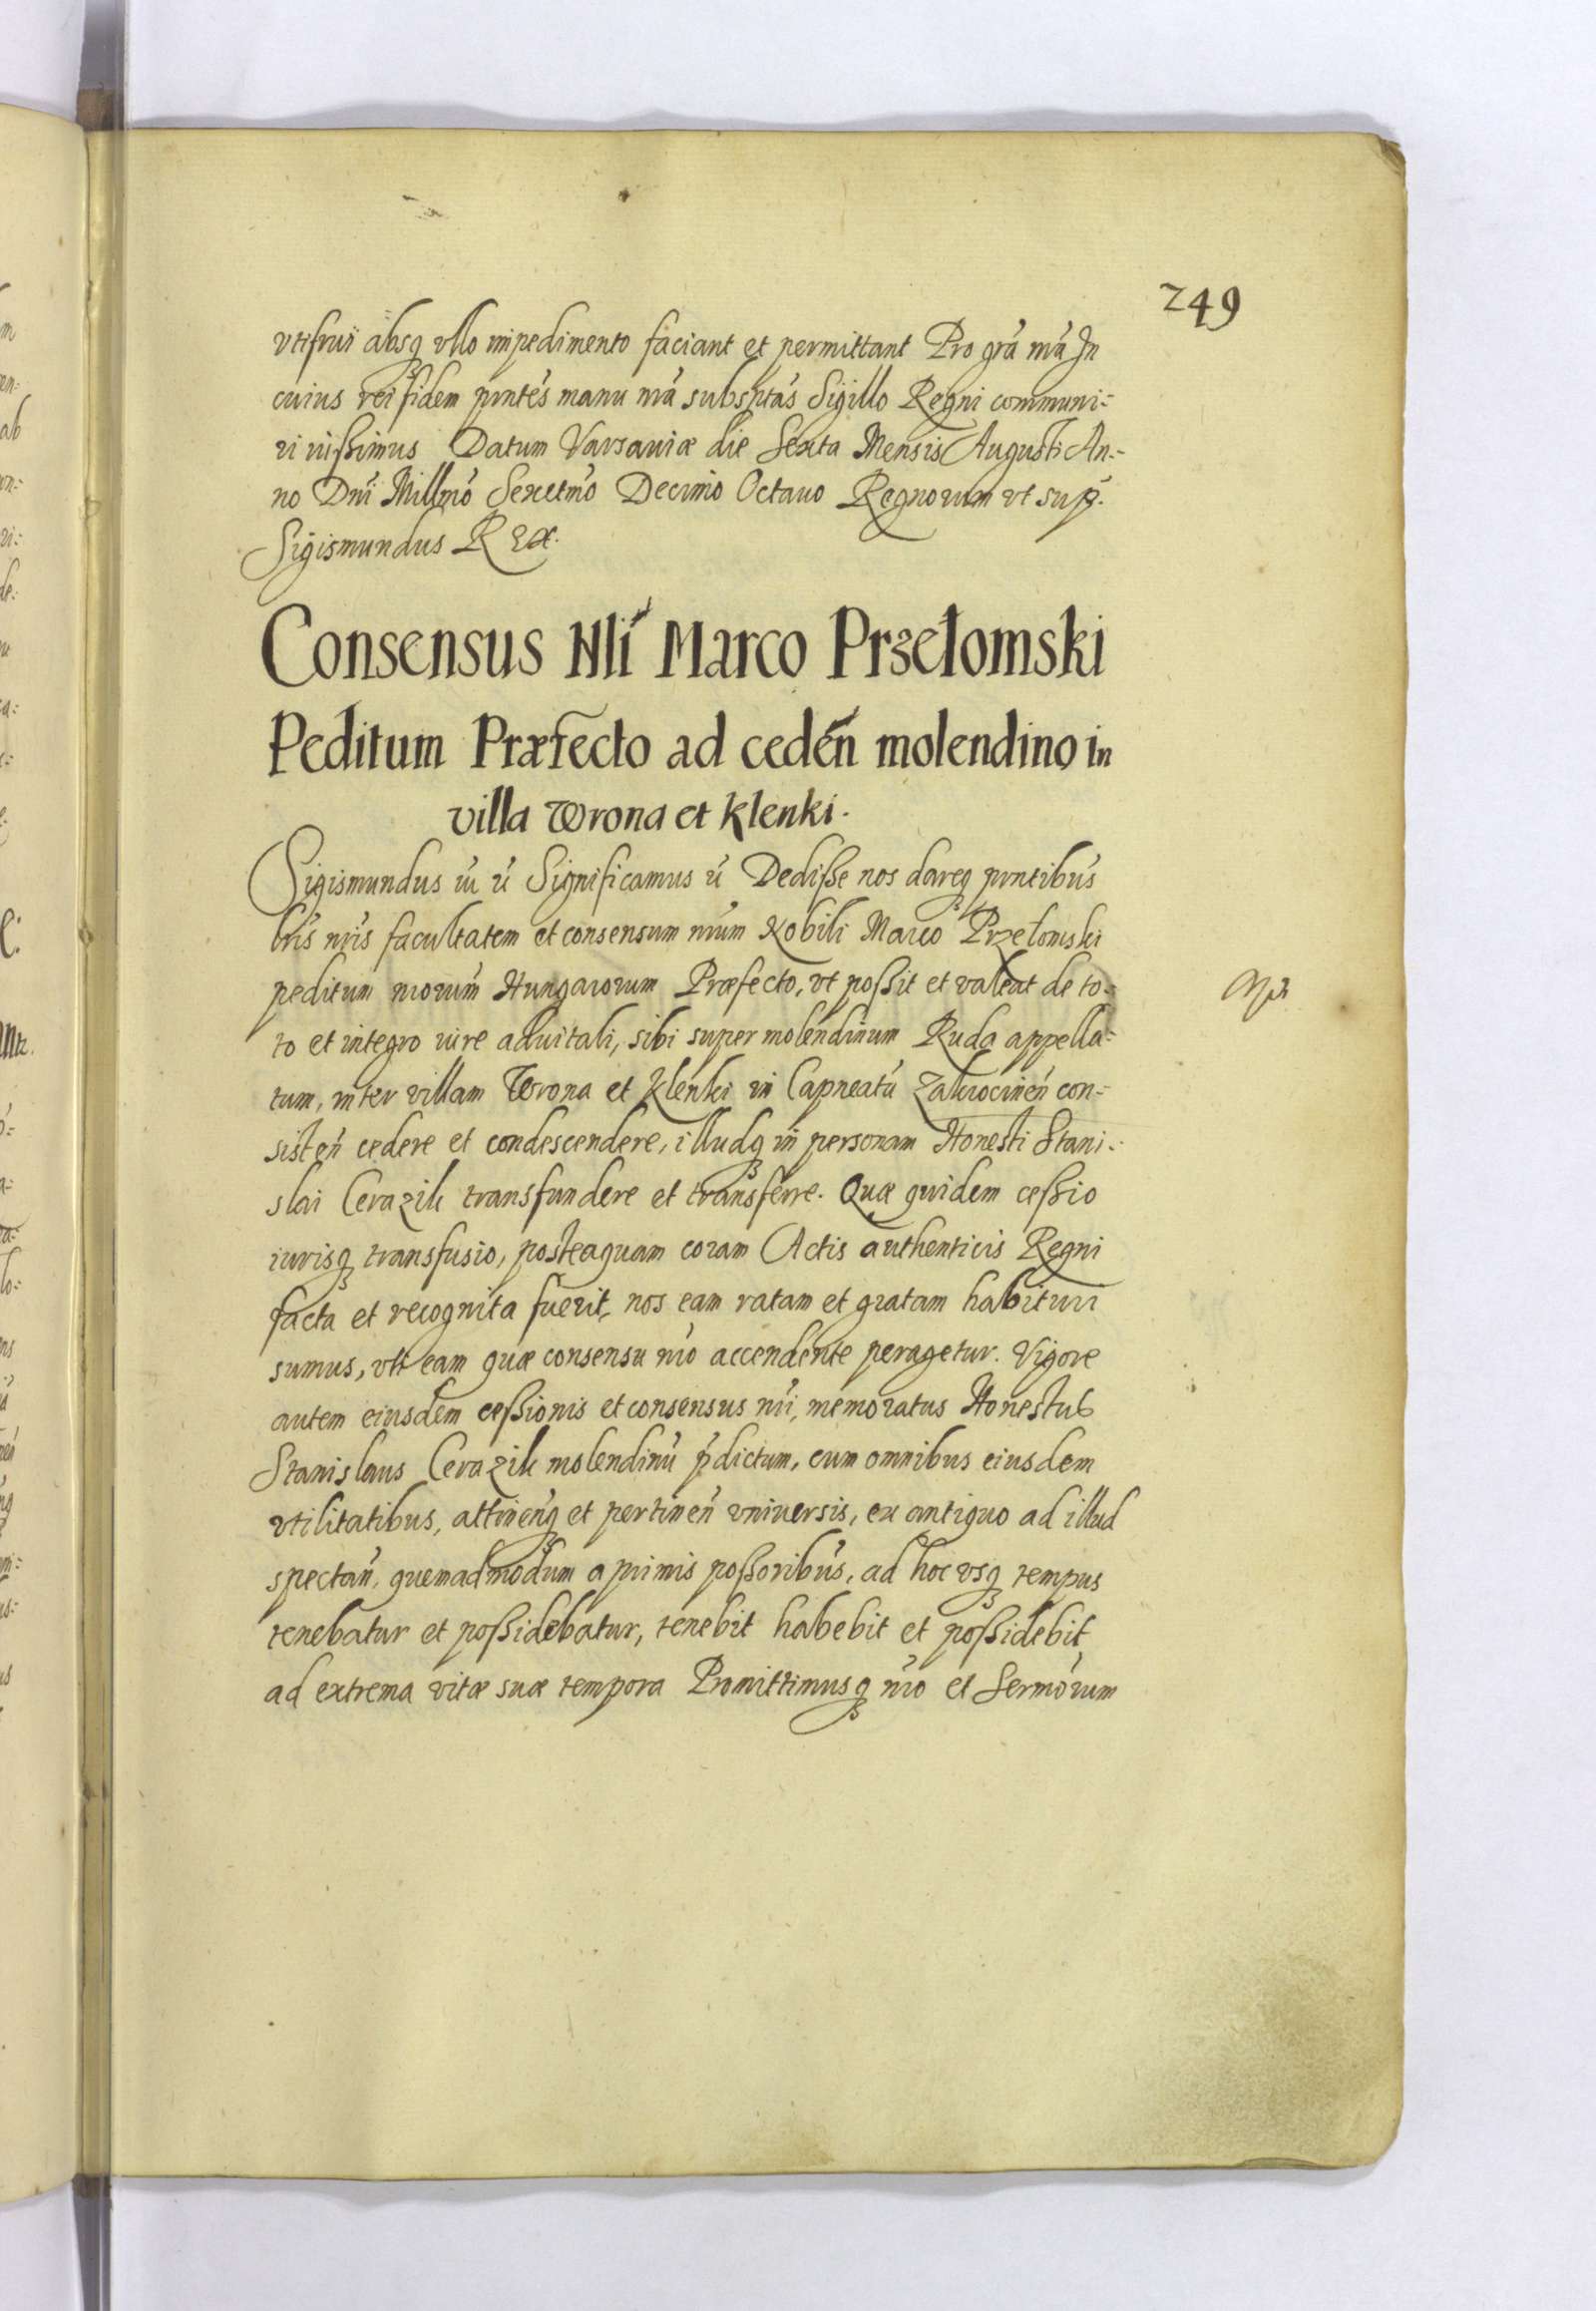 249
vtifrui absq vllo impedimento faciant et permittant Pro grã nrã In
cuius rei fidem pnntes manu nrã subscptas Sigillo Regni communi-
ri iussimus Datum Varsaviæ die Sexta Mensis Augusti An-
no Dni Millmo Sexctmo Decimo Octauo Regnorum vt sup.
Sigismundus Rex.
Consensus Nli Marco Przełomski
Peditum Præfecto ad ceden molendino in
villa Wrona et Klenki.
Sigismundus Significamus Dedisse nos dareq pnntibus
lris nris facultatem et consensum nrum Nobili Marco Przełomski
peditum nrorum Hungarorum Præfecto, vt possit et valeat de to-
to et integro iure aduitali, sibi super molendinum Ruda appella-
tum, inter villam Wrona et Klenki in Capneatu Zakrocimen con-
sisten cedere et condescendere, illudq in personam Honesti Stani-
slai Cerazik transfundere et transferre. Quæ quidem cessio
iurisq transfusio, posteaquam coram Actis authenticis Regni
facta et recognita fuerit, nos eam ratam et gratam habituri
sumus, vti eam quæ consensu nro accendente peragetur. Vigore
autem eiusdem cessionis et consensus nri, memoratus Honestus
Stanislaus Cerazik molendinu pdictum, cum omnibus eiusdem
vtilitatibus, attinenq et pertinen vniuersis, ex antiquo ad illud
spectan, quemadmodum a primis possoribus, ad hoc vsq tempus
tenebatur et possidebatur, tenebit habebit et possidebit
ad extrema vitæ suæ tempora Promittimusq nro et Sermorum